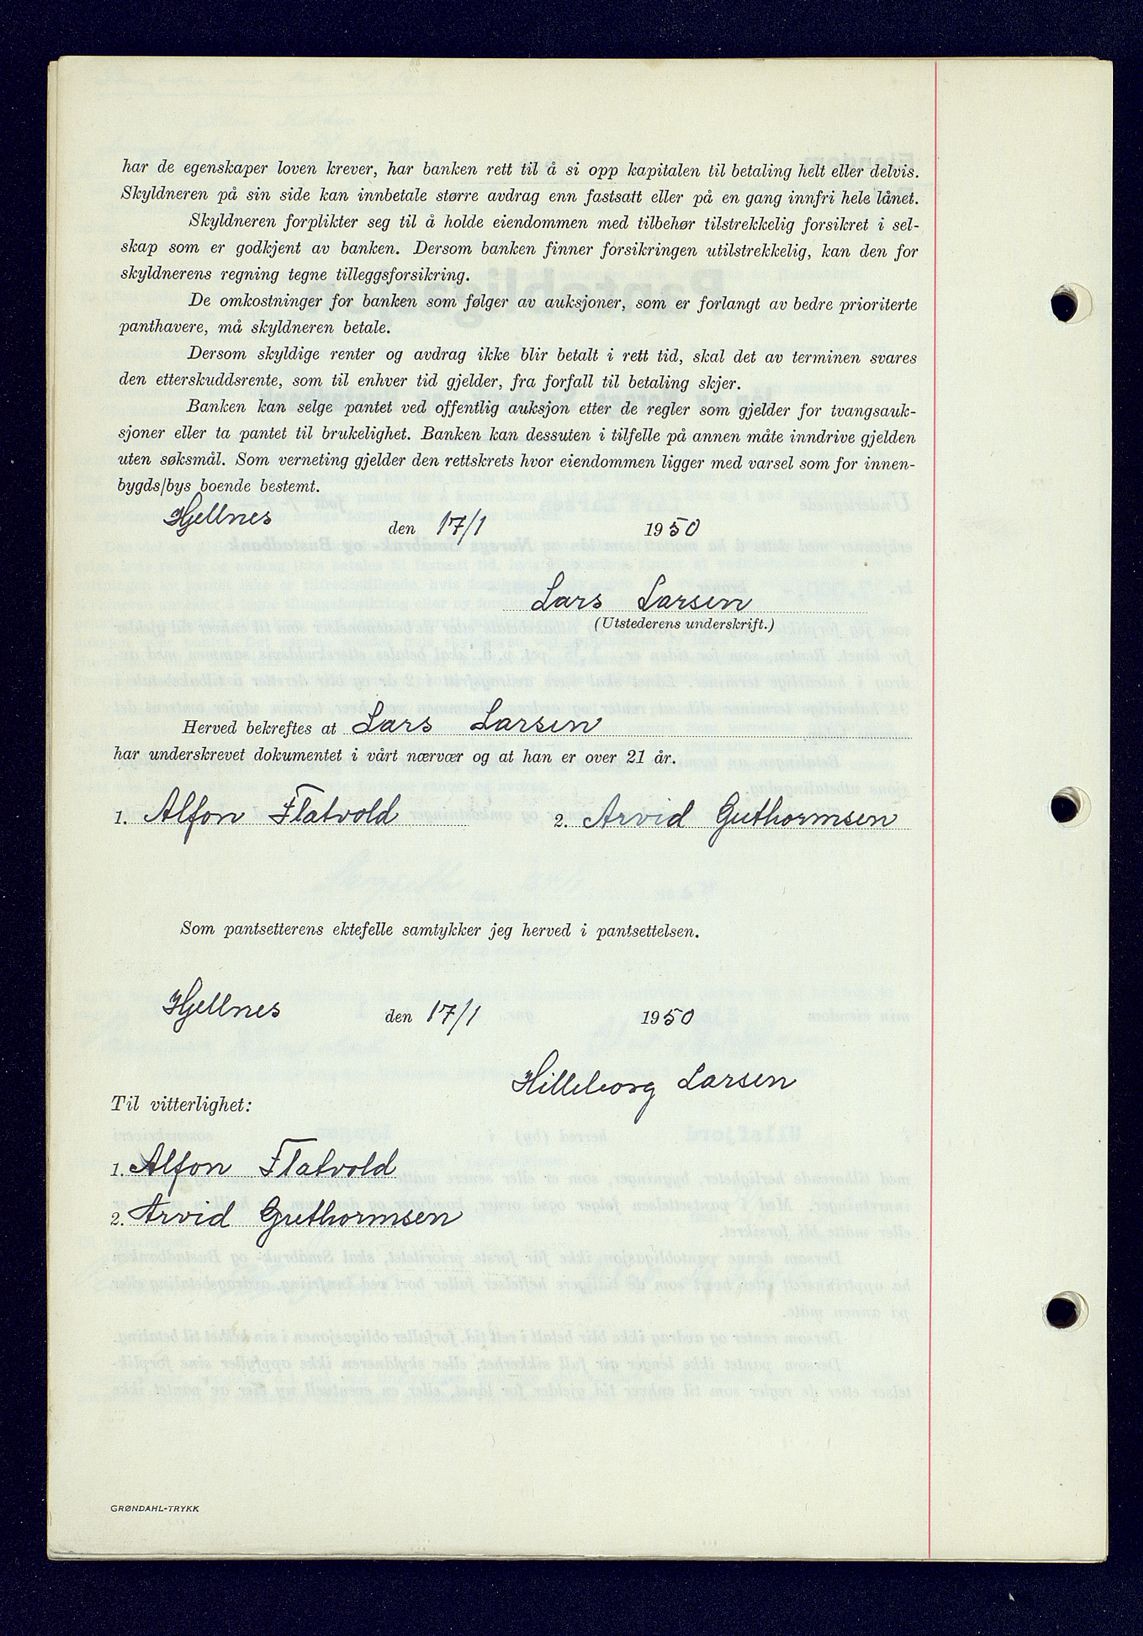 har de egenskaper loven krever, har banken rett til å si opp kapitalen til betaling helt eller delvis.
Skyldneren på sin side kan innbetale større avdrag enn fastsatt eller på en gang innfri hele lånet.
Skyldneren forplikter seg til å holde eiendommen med tilbehør tilstrekkelig forsikret i sel-
skap som er godkjent av banken. Dersom banken finner forsikringen utilstrekkelig, kan den for
skyldnerens regning tegne tilleggsforsikring.
De omkostninger for banken som følger av auksjoner, som er forlangt av bedre prioriterte
panthavere, må skyldneren betale.
Dersom skyldige renter og avdrag ikke blir betalt i rett tid, skal det av terminen svares
den etterskuddsrente, som til enhver tid gjelder, fra forfall til betaling skjer.
Banken kan selge pantet ved offentlig auksjon etter de regler som gjelder for tvangsauk-
sjoner eller ta pantet til brukelighet. Banken kan dessuten i tilfelle på annen måte inndrive gjelden
uten søksmål. Som verneting gjelder den rettskrets hvor eiendommen ligger med varsel som for innen-
bygds/bys boende bestemt.
Hjellnes den 17/1 1950
Lars Larsen
(Utstederens underskrift.)
Herved bekreftes at Lars Larsen
har underskrevet dokumentet i vårt nærvær og at han er over 21 år.
1. Alfon Flatvold 2. Arvid Guthormsen
Som pantsetterens ektefelle samtykker jeg herved i pantsettelsen.
Hjellnes den 17/1 1950
Hilleborg Larsen
Til vitterlighet:
1. Alfon Flatvold
2. Arvid Guthormsen
GRØNDAHL-TRYKK